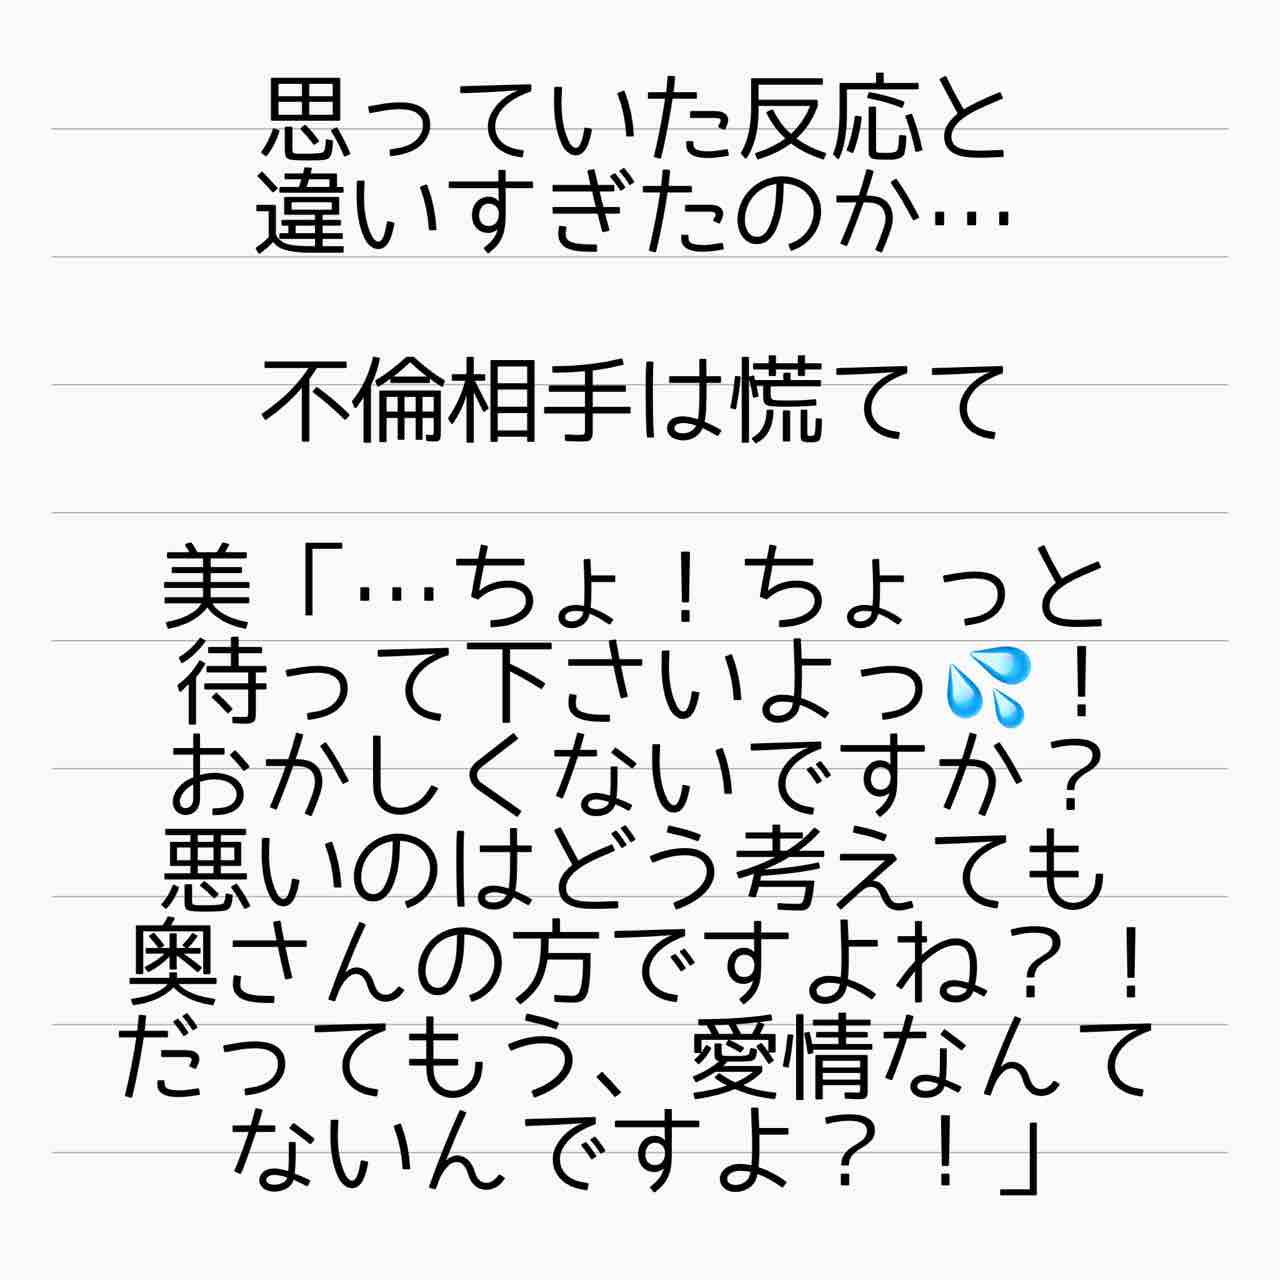 思っていた反応と
違いすぎたのか…
不倫相手は慌てて
美「…ちょ！ちょっと
待って下さいよっ💦！
おかしくないですか？
悪いのはどう考えても
奥さんの方ですよね？！
だってもう、愛情なんて
ないんですよ？！」